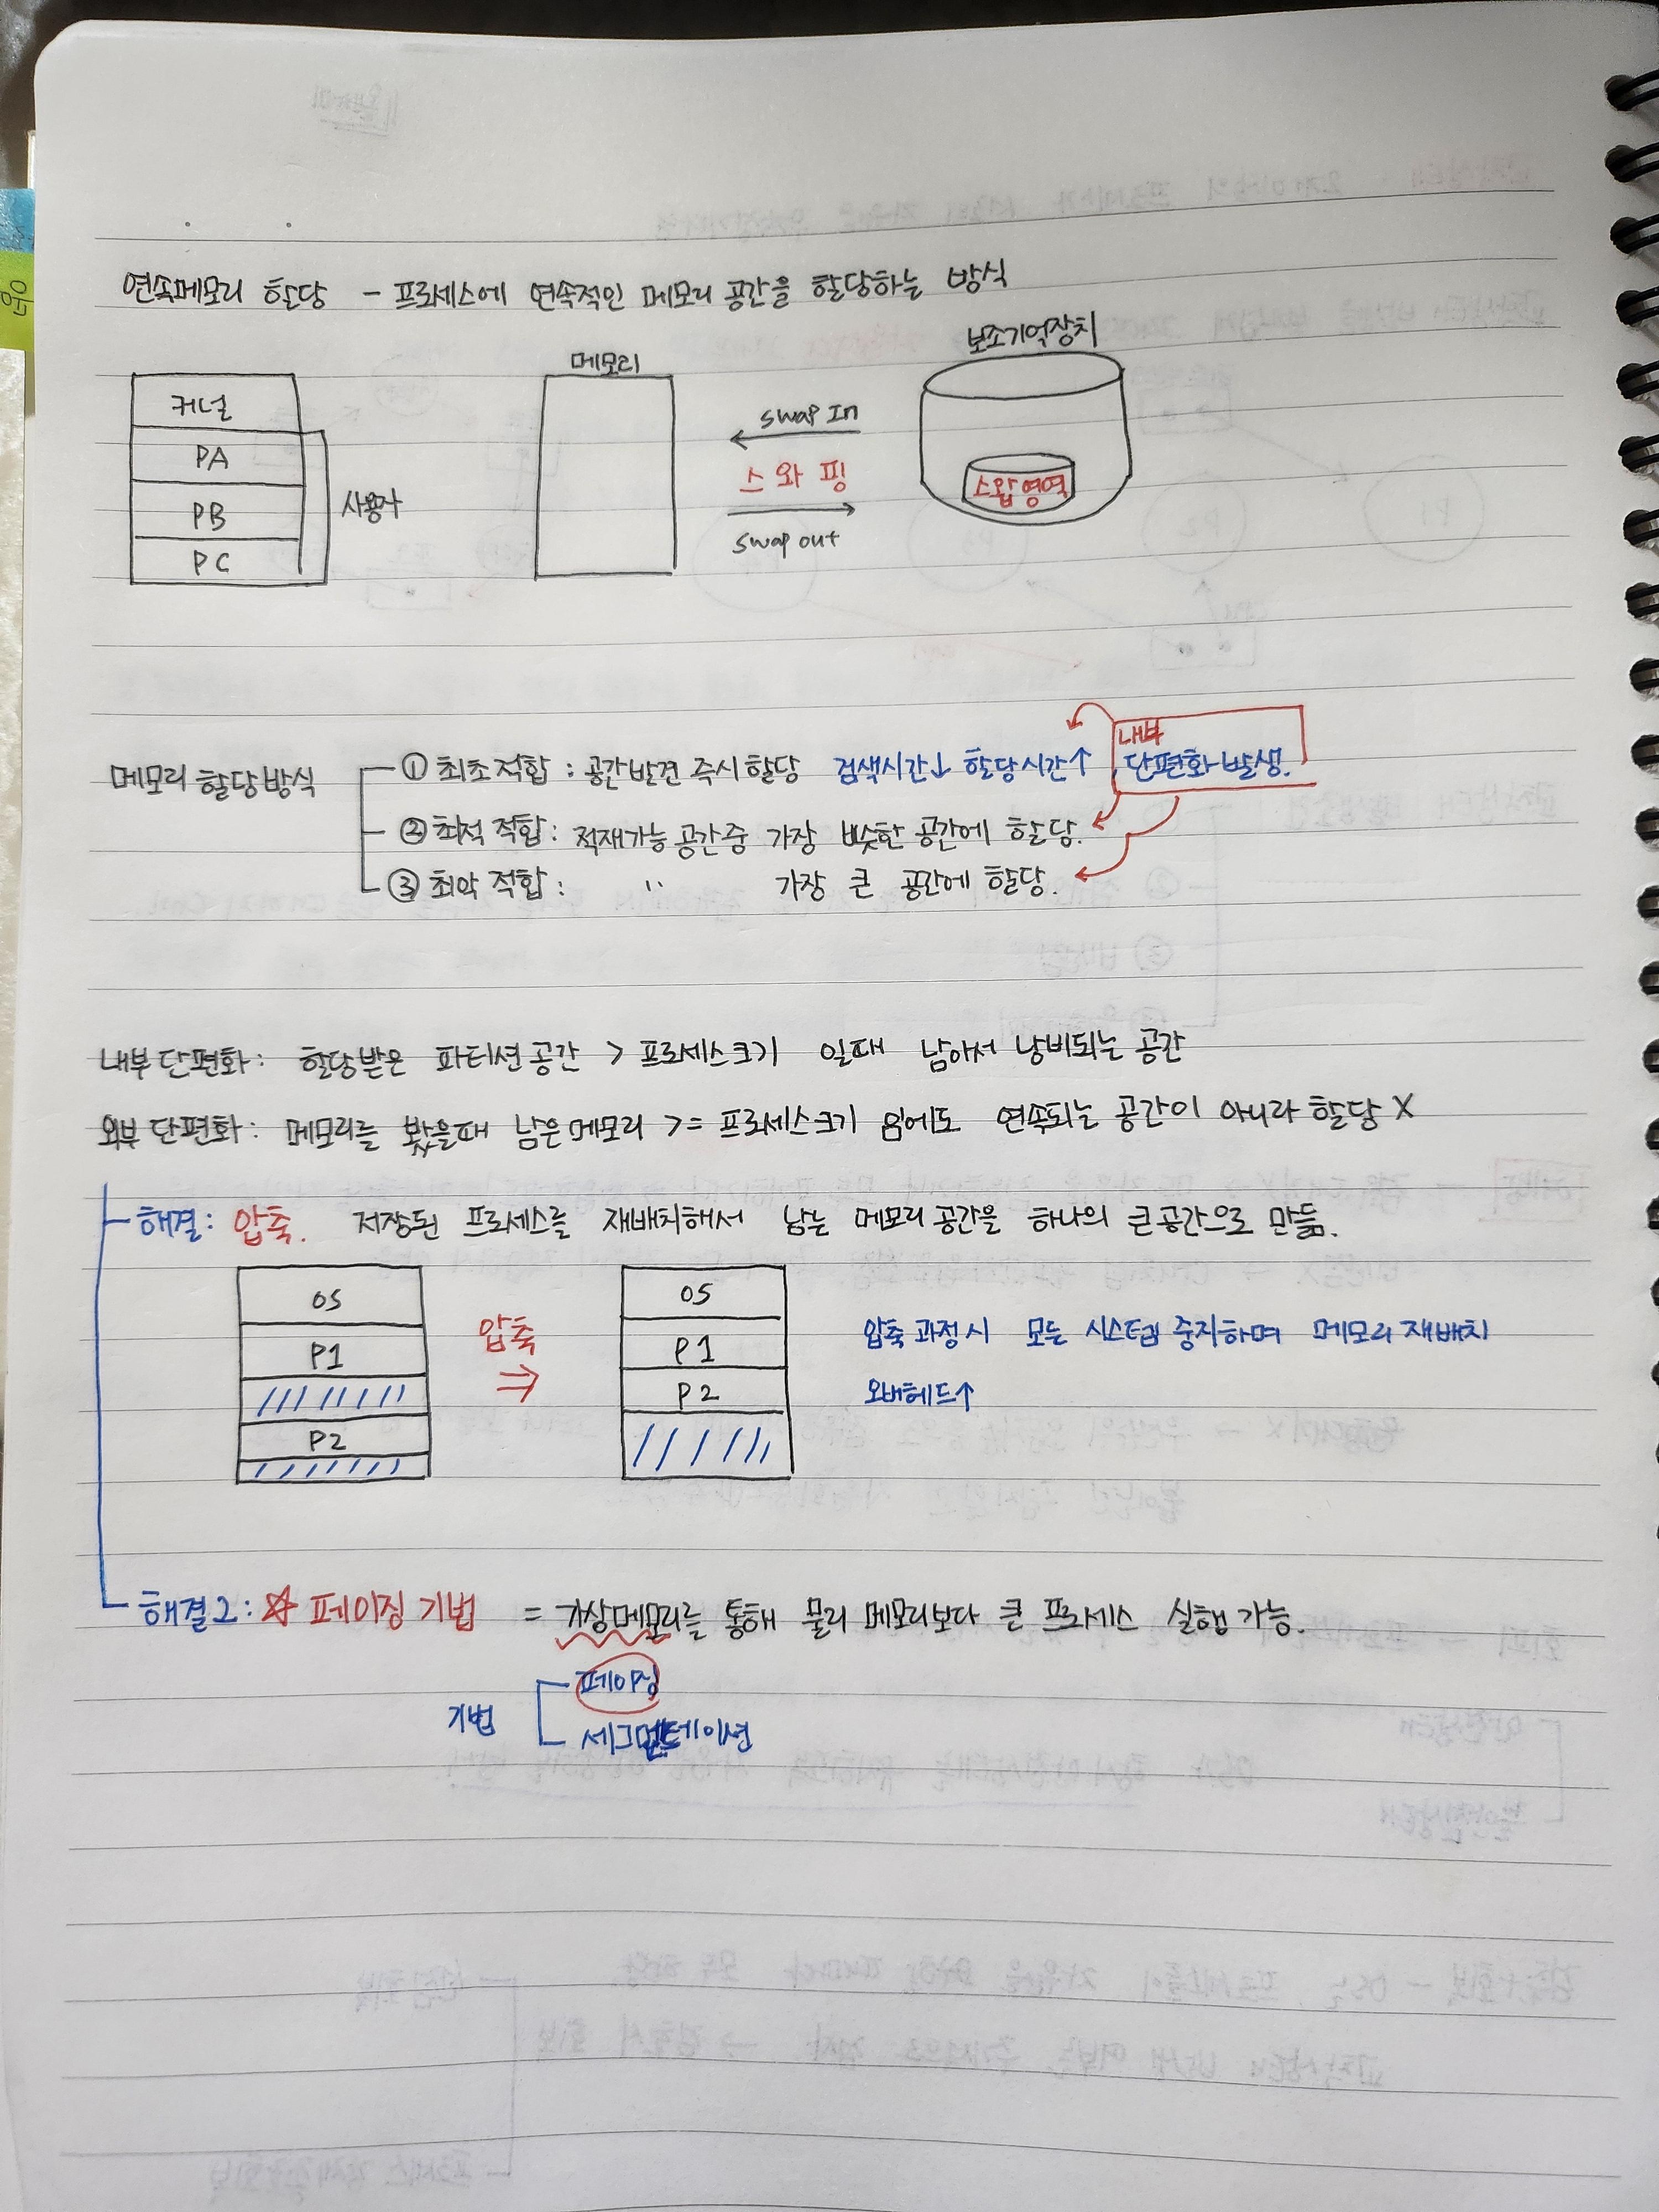 연속메모리 할당 - 프로세스에 연속적인 메모리 공간을 할당하는 방식
커널
PA
PB
PC
사용자
메모리
swap In
스와핑
swap out
보조기억장치
스왑영역
메모리 할당방식
① 최초적합 : 공간발견 즉시할당 검색시간↓ 할당시간↑, 내부 단편화 발생.
② 최적 적합 : 적재가능 공간중 가장 비슷한 공간에 할당.
③ 최악 적합 : 〃 가장 큰 공간에 할당.
내부 단편화 : 할당받은 파티션 공간 > 프로세스크기 일때 남아서 낭비되는 공간
외부 단편화 : 메모리를 봤을때 남은 메모리 >= 프로세스크기 음에도 연속되는 공간이 아니라 할당 X
해결 : 압축. 저장된 프로세스를 재배치해서 남는 메모리 공간을 하나의 큰 공간으로 만듦.
OS
P1
P2
압축
⇒
OS
P1
P2
압축 과정시 모든 시스템 중지하며 메모리 재배치
오버헤드↑
해결2 : ☆ 페이징 기법 = 가상메모리를 통해 물리 메모리보다 큰 프로세스 실행 가능.
기법
페이징
세그멘테이션